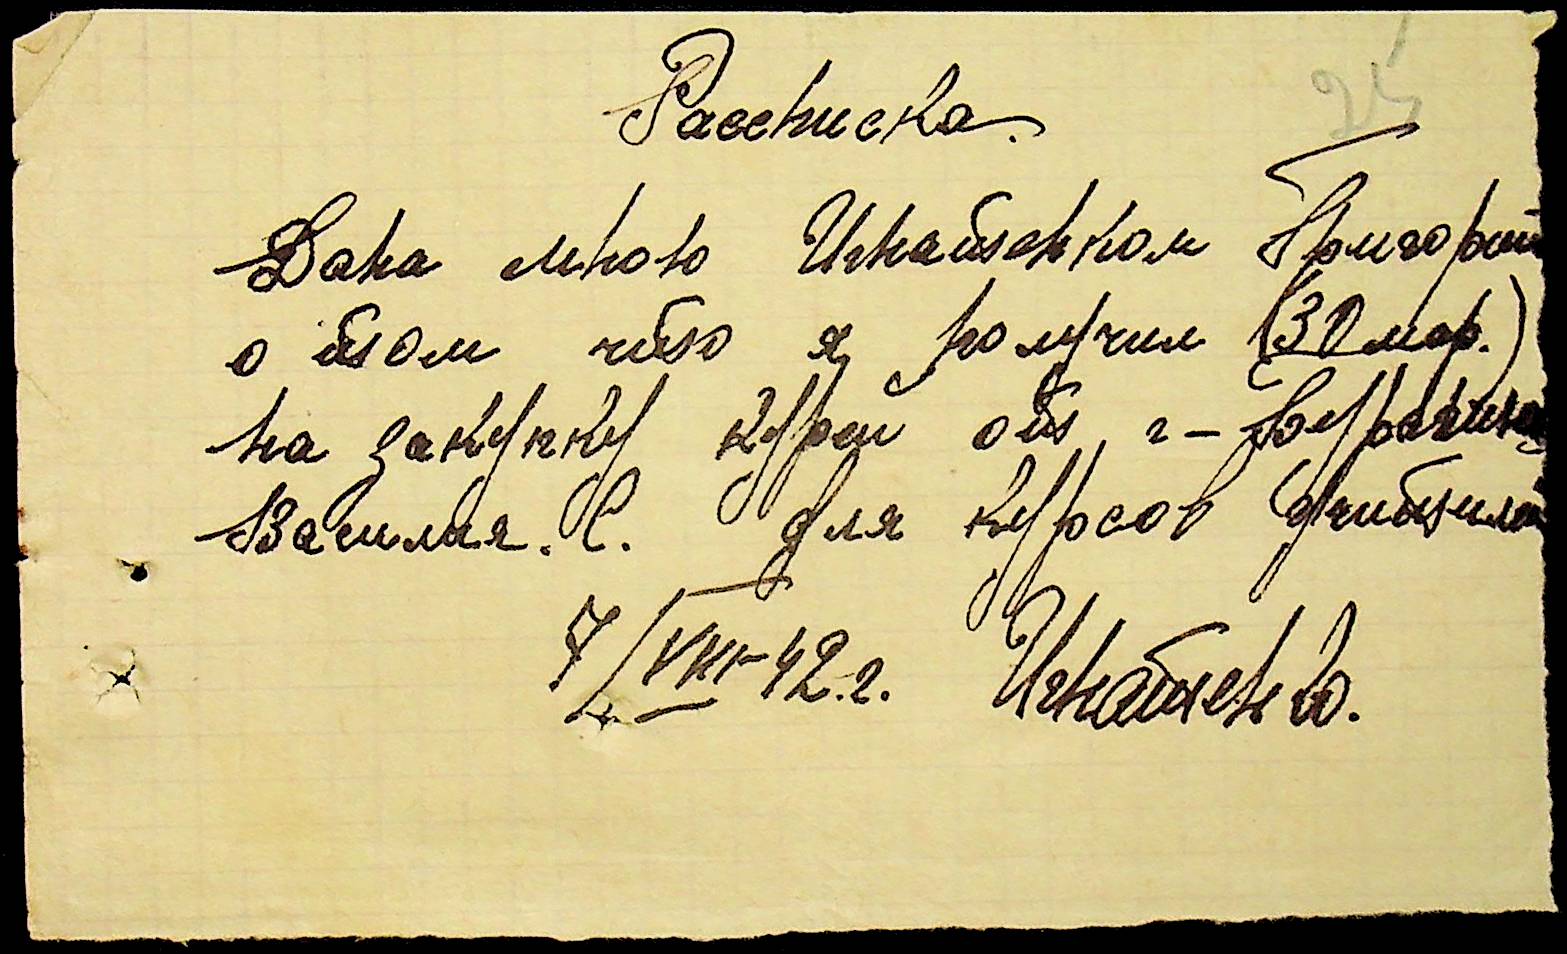 25
Расписка.
Дана мною Игнатенком Григорий
о том что я получил (30 мар.)
на закупку курей от г-
Василия. С. для курсов учителей
7/VIII-42.г. Игнатенко.